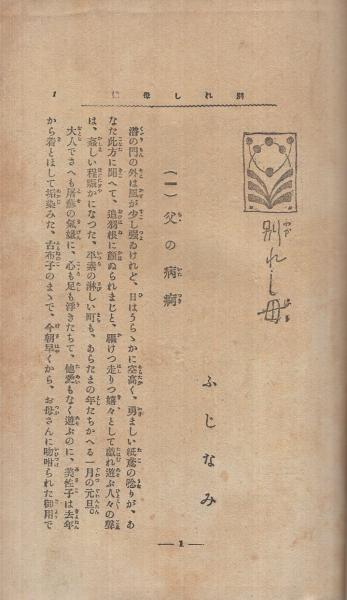 1 別れし母に
別れし母
ふじなみ
(一) 父の病痾
潜の門の外は風が少し強ゐけれど、日はうらゝかに空高く、勇ましい紙鳶の唸りが、あ
なた此方に聞へて、追羽根に顔ぬられまじと、驅けつ走りつ嬉々として戯れ遊ぶ人々の聲
は、姦しい程賑かになつた。平素の淋しい町も、あらたまの年たちかへる一月の元旦。
大人でさへも屠蘇の氣嫌に、心も足も浮きたちて、他愛もなく遊ぶのに、美性子は去年
から着とほして垢染みた、古布子のまゝで、今朝早くから、お母さんに吩咐られた御用で
— 1 —